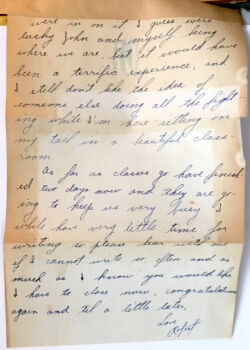 were in on it I guess were
lucky John and myself being
where we are, but it would have
been a terrific experience, and
I still don't like the idea of
someone else doing all the fight
ing while I'm here sitting on
my tail in a beautiful class-
room.
As far as classes go have finish
ed two days now and they are go-
ing to keep us very busy. I
while have very little time for
writing so please bear with me
if I cannot write so often and as
much as I know you would like.
I have to close now, congratulations
again and tel a little later,
Love